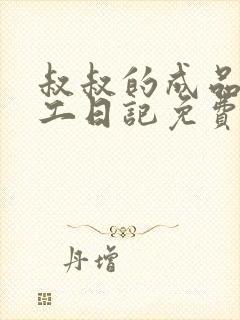 叔叔的成品
工日記免費
丹增